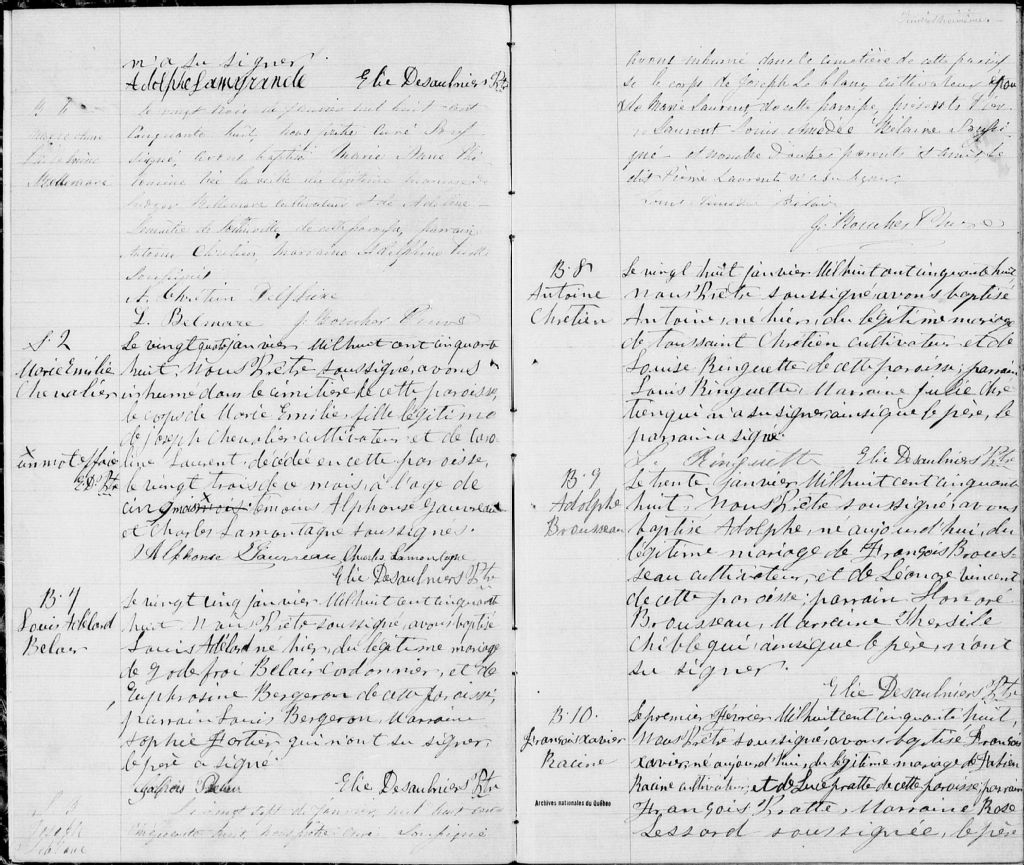 n'a su signer.
Adolphe Lamyrande Elie Desaulniers Ptre
B 6
Marie Anne
Philomène
Bellemare
Le vingt trois de janvier mil huit cent
cinquante huit, nous prêtre curé sous
signé, avons baptisé Marie Anne Phi
lomène née la veille du légitime mariage de
Bellemare cultivateur et de Adeline
de cette paroisse, parrain
Antoine Chretien, marraine Adelphine
soussignés
A. Chretien Delphine
L. Belmare J. Boucher Ptre curé
S. 2
Marie Emilie
Chevalier
Le vingt quatre janvier Mil huit cent cinquante
huit, Nous Prêtre soussigné, avons
inhumé dans le cimitière de cette paroisse,
le corps de Marie Emilie, fille légitime
de Joseph Chevalier cultivateur et de Caro
line Laurent, décédée en cette paroisse,
un mot effacé
E. D. Ptre
le vingt trois de ce mois, à l'age de
cinq mois, temoins Alphonse Gauvreau
et Charles Lamontagne soussignés.
Alphonse Gauvreau Charles Lamontagne
Elie Desaulniers Ptre
B. 7
Louis Adélard
Belair
Le vingt cinq janvier Mil huit cent cinquante
huit, Nous Prêtre soussigné, avons baptisé
Louis Adélard né hier, du légitime mariage
de Godefroi Belair Cordonnier, et de
Euphrosine Bergeron de cette paroisse;
parrain Louis Bergeron, Marraine
Sophie Fortier qui n'ont su signer,
le père a signé
Belair Elie Desaulniers Ptre
S. 3
Joseph
Leblanc
Le vingt sept de janvier, mil huit cent
cinquante huit, nous prêtre curé soussigné
avons inhumé dans le cimetière de cette parois
se le corps de Joseph Leblanc cultivateur époux
de Marie Laurent de cette paroisse, présents Pier
re Laurent Louis Amédée Bélaire soussi
gné et nombre d'autres parents et amis le
dit Pierre Laurent n'a su signer.
Louis Amédée Belair
J. Boucher Ptre curé
B. 8
Antoine
Chrétien
Le vingt huit janvier Mil huit cent cinquante huit
Nous Prêtre soussigné, avons baptisé
Antoine, né hier, du légitime mariage
de Toussaint Chrétien cultivateur et de
Louise Ringuette de cette paroisse; parrain
Louis Ringuette, Marraine Julie Chré
tien qui n'a su signer, ainsi que le père, le
parrain a signé.
L. Ringuette Elie Desaulniers Ptre
B. 9
Adolphe
Brousseau
Le trente janvier Mil huit cent cinquante
huit, Nous Prêtre soussigné, avons
baptisé Adolphe, né aujourd'hui, du
légitime mariage de François Brous-
seau cultivateur, et de Léonore Vincent
de cette paroisse; parrain Honoré
Brousseau, Marraine Thersile
qui, ainsi que le père, n'ont
su signer.
Elie Desaulniers Ptre
B. 10.
François Xavier
Racine
Le premier Février Mil huit cent cinquante huit,
Nous Prêtre soussigné, avons baptisé François
Xavier, né aujourd'hui, du légitime mariage de Fabien
Racine cultivateur, et de Luce Pratte de cette paroisse; parrain
François Pratte, Marraine Rose
Lessard soussignée, le père
Archives nationales du Québec